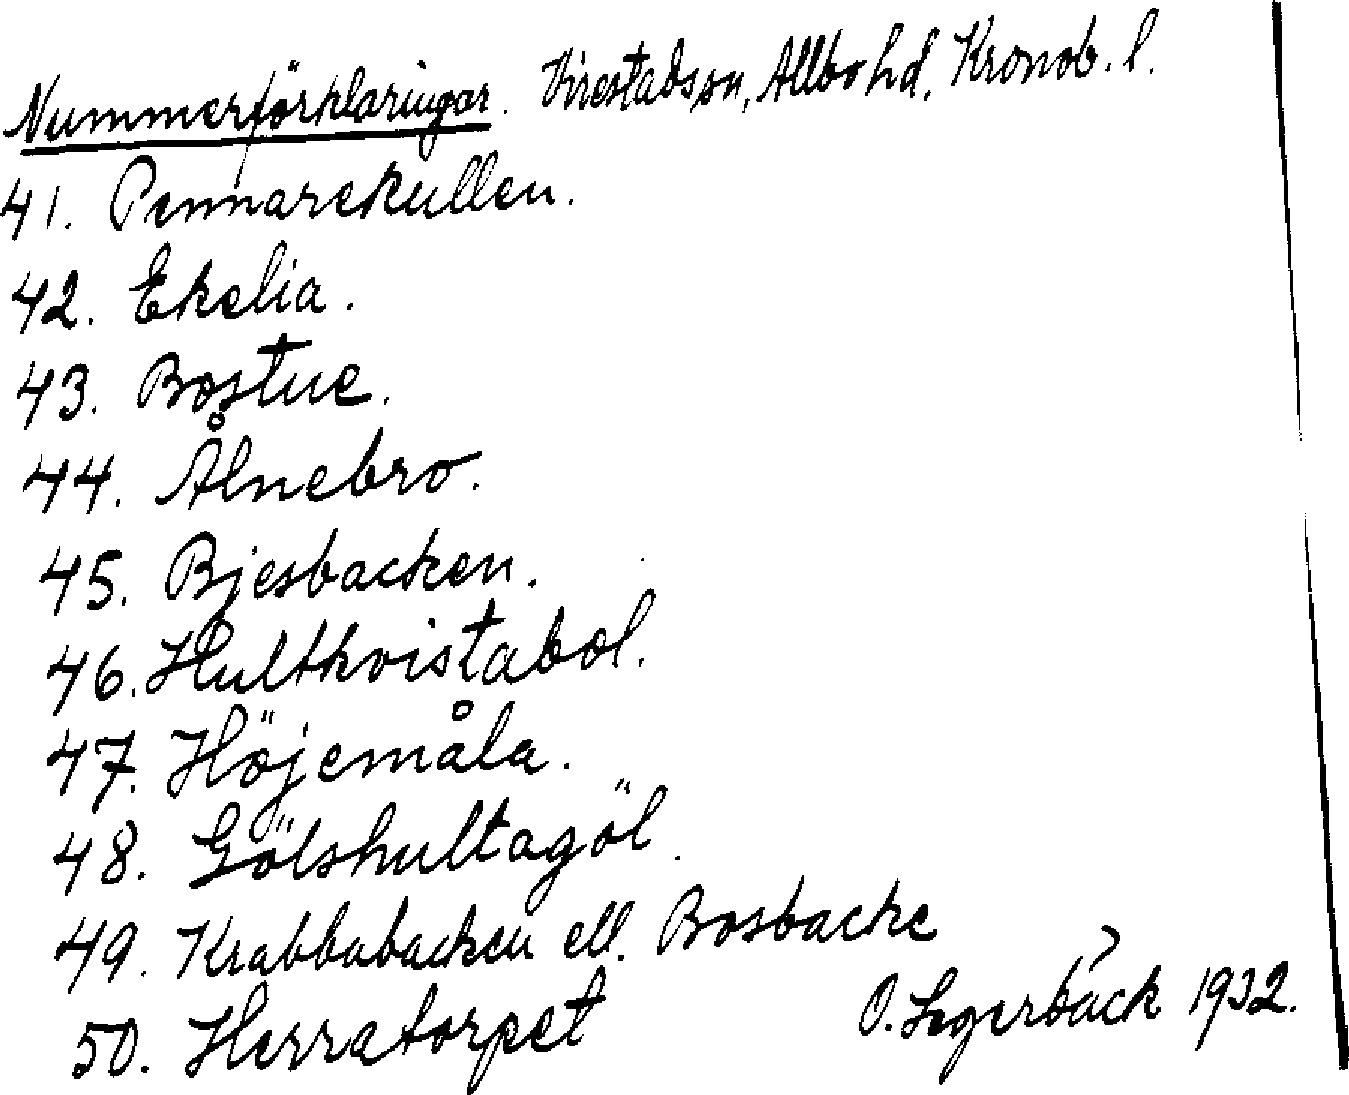 Nummerförklaringar. Virestads sn, Allbo hd, Kronob. l.
41. Pennarekullen.
42. Ekelia.
43. Bostue.
44. Ålnebro.
45. Bjesbacken.
46. Hultkvistabol.
47. Höjemåla.
48. Gölshultagöl.
49. Krabbabacken ell. Bosbacke
50. Herratorpet
O. Segerbäck 1932.